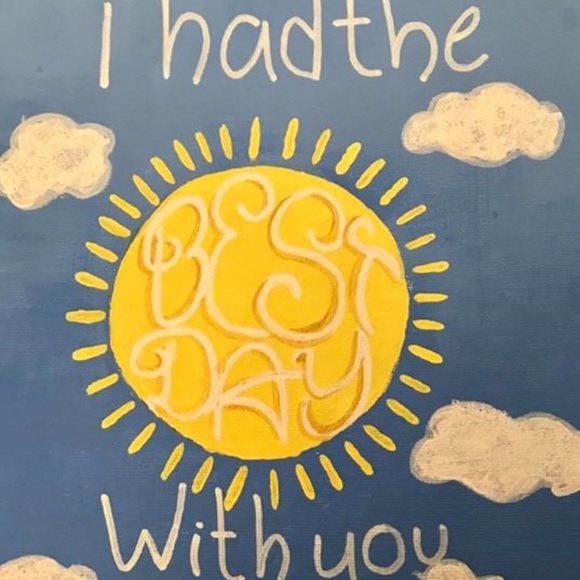 I had the
BEST
DAY
With you